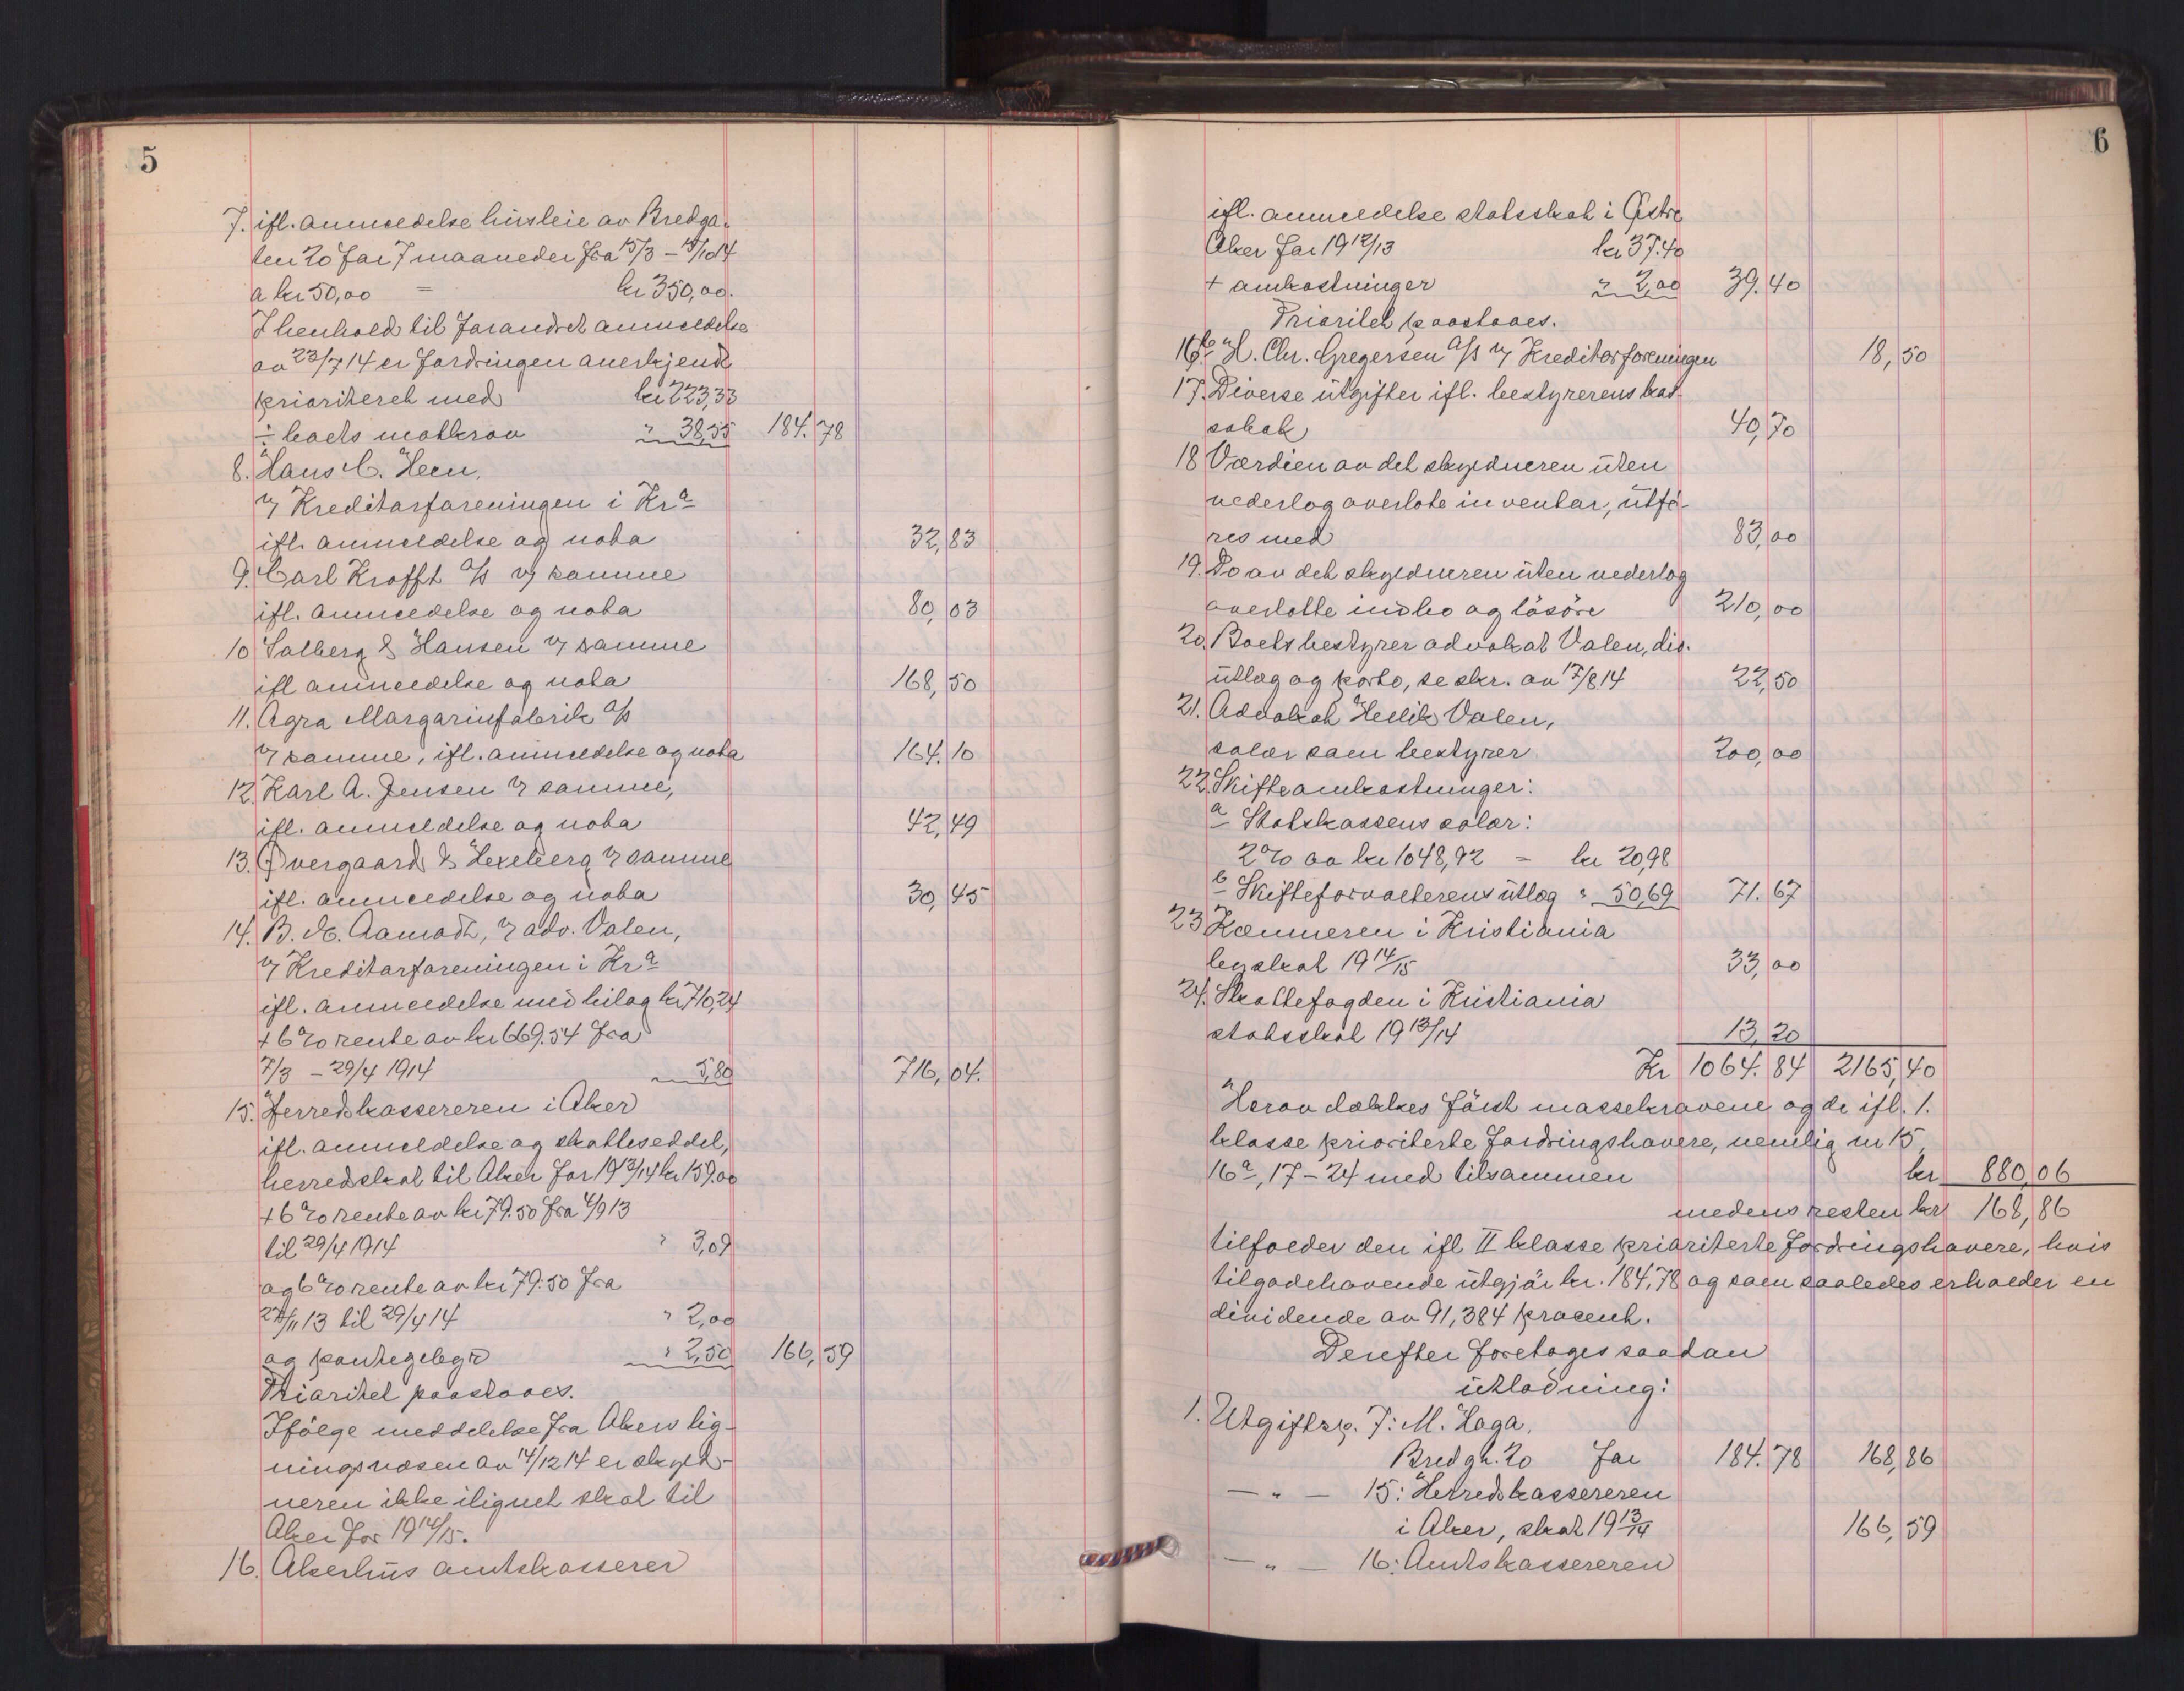 5
7. ifl. anmeldelse husleie av Bredga-
ten 20 for 7 maaneder fra 15/3 - 15/10 14
a kr 50,00 = kr 350,00.
I henhold til forandret anmeldelse
av 23/7 14 er fordringen anerkjendt
prioriteret med kr 223,33
÷ boets motkrav " 38,55 184.78
8. Hans C. Heen.
v/ Kreditorforeningen i Kra
ifl. anmeldelse og nota 32,83
9. Carl Krafft A/S v/ samme
ifl. anmeldelse og nota 80,03
10 Salberg & Hansen v/ samme
ifl anmeldelse og nota 168,50
11. Agra Margarinfabrik A/S
v/ samme, ifl. anmeldelse og nota 164.10
12. Karl A. Jensen v/ samme,
ifl. anmeldelse og nota 42,49
13. Øvergaard & Hexeberg v/ samme
ifl. anmeldelse og nota 30,45
14. B. M. Aamodt, v/ adv. Valen,
v/ Kreditorforeningen i Kra
ifl. anmeldelse med bilag kr 710,24
+ 6 % rente av kr 669.54 fra
7/3 - 29/4 1914 5,80 716,04.
15. Herredskassereren i Aker
ifl. anmeldelse og skatteseddel,
herredskat til Aker for 1913/14 kr 159.00
+ 6 % rente av kr 79.50 fra 4/9 13
til 29/4 1914 " 3,09
og 6 % rente av kr 79.50 fra
27/11 13 til 29/4 14 " 2,00
og pantegebyr " 2,50 166,59
Prioritet paastaaes.
Ifølge meddelelse fra Akers lig-
ningsvæsen av 14/12 14 er skyld-
neren ikke ilignet skat til
Aker for 1914/15.
16. Akerhus amtskasserer
6
ifl. anmeldelse statsskat i Østre
Aker for 1912/13 kr 37.40
+ omkostninger " 2,00 39.40
Prioritet paastaaes.
16 b H. Chr. Gregersen A/S v/ Kreditorforeningen 18,50
17. Diverse utgifter ifl. bestyrerens kas-
sabok 40,70
18 Værdien av det skyldneren uten
vederlag overlate inventar, utfø-
res med 83,00
19. Do av det skyldneren uten vederlag
overlatte indbo og løsøre 210,00
20. Boets bestyrer advokat Valen, div.
utlæg og porto, se skr. av 17/8 14 22,50
21. Advokat Hellik Valen,
salær som bestyrer 200,00
22. Skifteomkostninger:
a Statskassens salær:
2 % av kr 1048,92 = kr 20,98
b Skifteforvalterens utlæg " 50,69 71.67
23 Kæmneren i Kristiania
byskat 1914/15 33,00
24. Skattefogden i Kristiania
statsskat 1913/14 13,20
Kr 1064.84 2165,40
Herav dækkes først massekravene og de ifl. 1.
klasse prioriterte fordringshavere, nemlig nr 15,
16 a, 17 - 24 med tilsammen kr 880,06
medens resten kr 168,86
tilfalder den ifl II klasse prioriterte fordringshavere, hvis
tilgodehavende utgjør kr. 184,78 og som saaledes erholder en
dividende av 91,384 procent.
Derefter foretages saadan
utlodning:
1. Utgiftsp. 7: M. Haga,
Bredgt. 20 for 184.78 168,86
— " — 15: Herredskassereren
i Aker, skat 1913/14 166,59
— " — 16: Amtskassereren